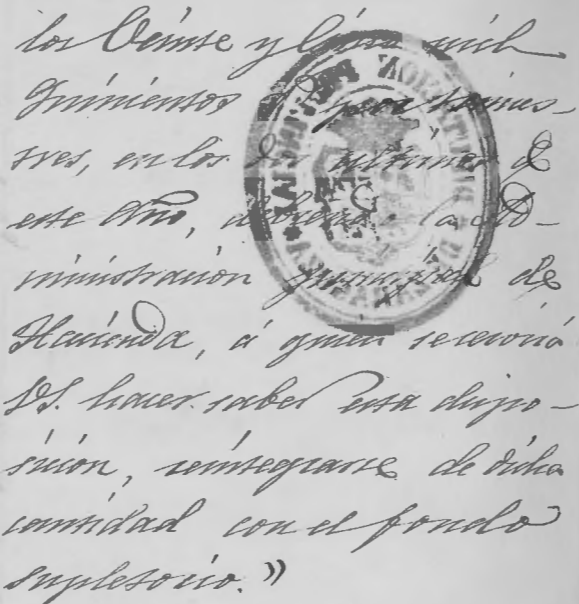 los Veinte y Cinco mil
Quinientos tri
tres, en los dos ultimos de
este Año, la Ad-
ministración principal de
Hacienda, á quien se servirá
VS. hacer saber esta dispo-
sición, reintegrarse de dicha
cantidad con el fondo
supletorio.»